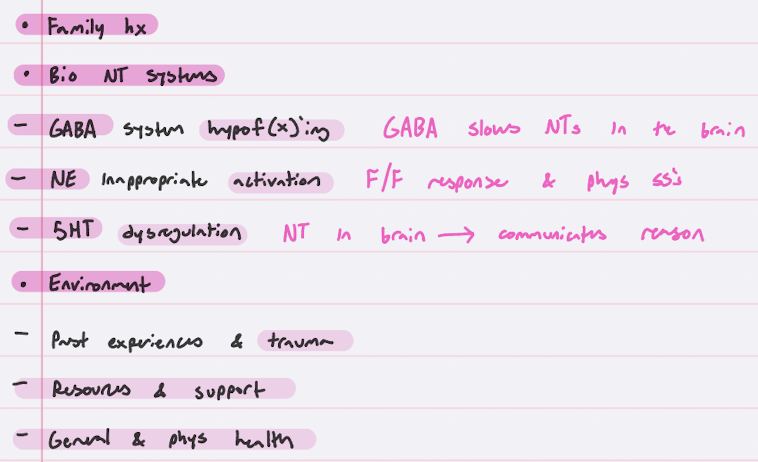 • Family hx
• Bio NT systems
- GABA system hypof(x)'ing GABA slows NTs in the brain
- NE inappropriate activation F/F response & phys ss's
- 5HT dysregulation NT in brain → communicates reason
• Environment
- Past experiences & trauma
- Resources & support
- General & phys health